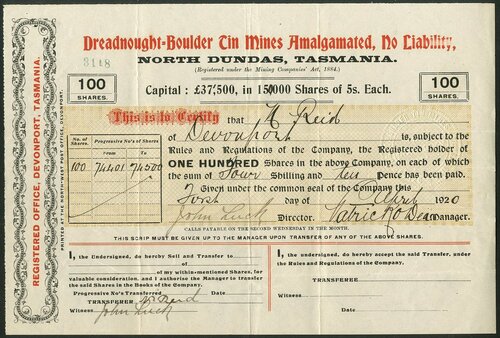 Dreadnought-Boulder Tin Mines Amalgamated, No Liability,
3118
NORTH DUNDAS, TASMANIA.
(Registered under the Mining Companies' Act, 1884.)
100
SHARES.
Capital : £37,500, in 150000 Shares of 5s. Each.
100
SHARES.
REGISTERED OFFICE, DEVONPORT, TASMANIA.
PRINTED AT THE NORTH-WEST POST OFFICE, DEVONPORT.
This is to Certify that A Reid
of Devonport, is subject to the
Rules and Regulations of the Company, the Registered holder of
ONE HUNDRED Shares in the above Company, on each of which
the sum of Four Shilling and ten Pence has been paid.
Given under the common seal of the Company this
First day of April 1920
John Luck Director. Manager.
No. of Shares. Progressive No's of Shares.
From To
100 74401 74500
CALLS PAYABLE ON THE SECOND WEDNESDAY IN THE MONTH.
THIS SCRIP MUST BE GIVEN UP TO THE MANAGER UPON TRANSFER OF ANY OF THE ABOVE SHARES.
I, the Undersigned, do hereby Sell and Transfer to
of of my within-mentioned Shares, for
valuable consideration, and I authorise the Manager to transfer
the said Shares in the Books of the Company.
Progressive No's Transferred
TRANSFERER Reid
Witness John Luck
I, the undersigned, do hereby accept the said Transfer, under
the Rules and Regulations of the Company.
TRANSFEREE
Witness